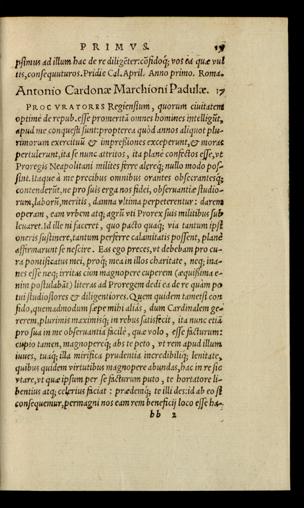 PRIMVS. 19
ipsimus ad illum hac de re diligēter: cōfidoq́; vos ea quæ vul
tis, consequuturos. Pridie Cal. April. Anno primo. Roma.
Antonio Cardonæ Marchioni Padulæ. 17
PROCVRATORES Regiensium, quorum ciuitatem
optimè de repub. esse promeritā omnes homines intelligūt,
apud me conquesti sunt: propterea quòd annos aliquot plu-
rimorum exercituū & impreßiones exceperunt, & moras
pertulerunt, ita se nunc attritos, ita planè confectos esse, vt
Proregis Neapolitani milites ferre alereq́; nullo modo pos-
sint. Itaque à me precibus omnibus orantes obsecrantesq́;
contenderūt, ne pro suis erga nos fidei, obseruantiæ studio-
rum, laborū, meritis, damna vltima perpeterentur: darem
operam, eam vrbem atq; agrū vti Prorex suis militibus sub
leuaret. Id ille ni faceret, quo pacto quaq́; via tantum ipsi
oneris sustinere, tantum perferre calamitatis possent, planè
affirmarunt se nescire. Eas ego preces, vt debebam pro cu-
ra pontificatus mei, proq́; mea in illos charitate, neq; ina-
nes esse neq; irritas cùm magnopere cuperem (æquißima e-
nim postulabāt) literas ad Proregem dedi ea de re quàm po
tui studiosiores & diligentiores. Quem quidem tametsi con
fido, quemadmodum sæpe mihi aliàs, dum Cardinalem ge-
rerem, plurimis maximisq́; in rebus satisfecit, ita nunc etiā
pro sua in me obseruantia facilè, quæ volo, esse facturum:
cupio tamen, magnopereq́; abs te peto, vt rem apud illum
iuues, tuaq́; illa mirifica prudentia incredibiliq́; lenitate,
quibus quidem virtutibus magnopere abundas, hac in re sic
vtare, vt quæ ipsum per se facturum puto, te hortatore li-
bentius atq; celerius faciat: prædemq́; te illi des: id ab eo si
consequemur, permagni nos eam rem beneficij loco esse ha-
bb 2